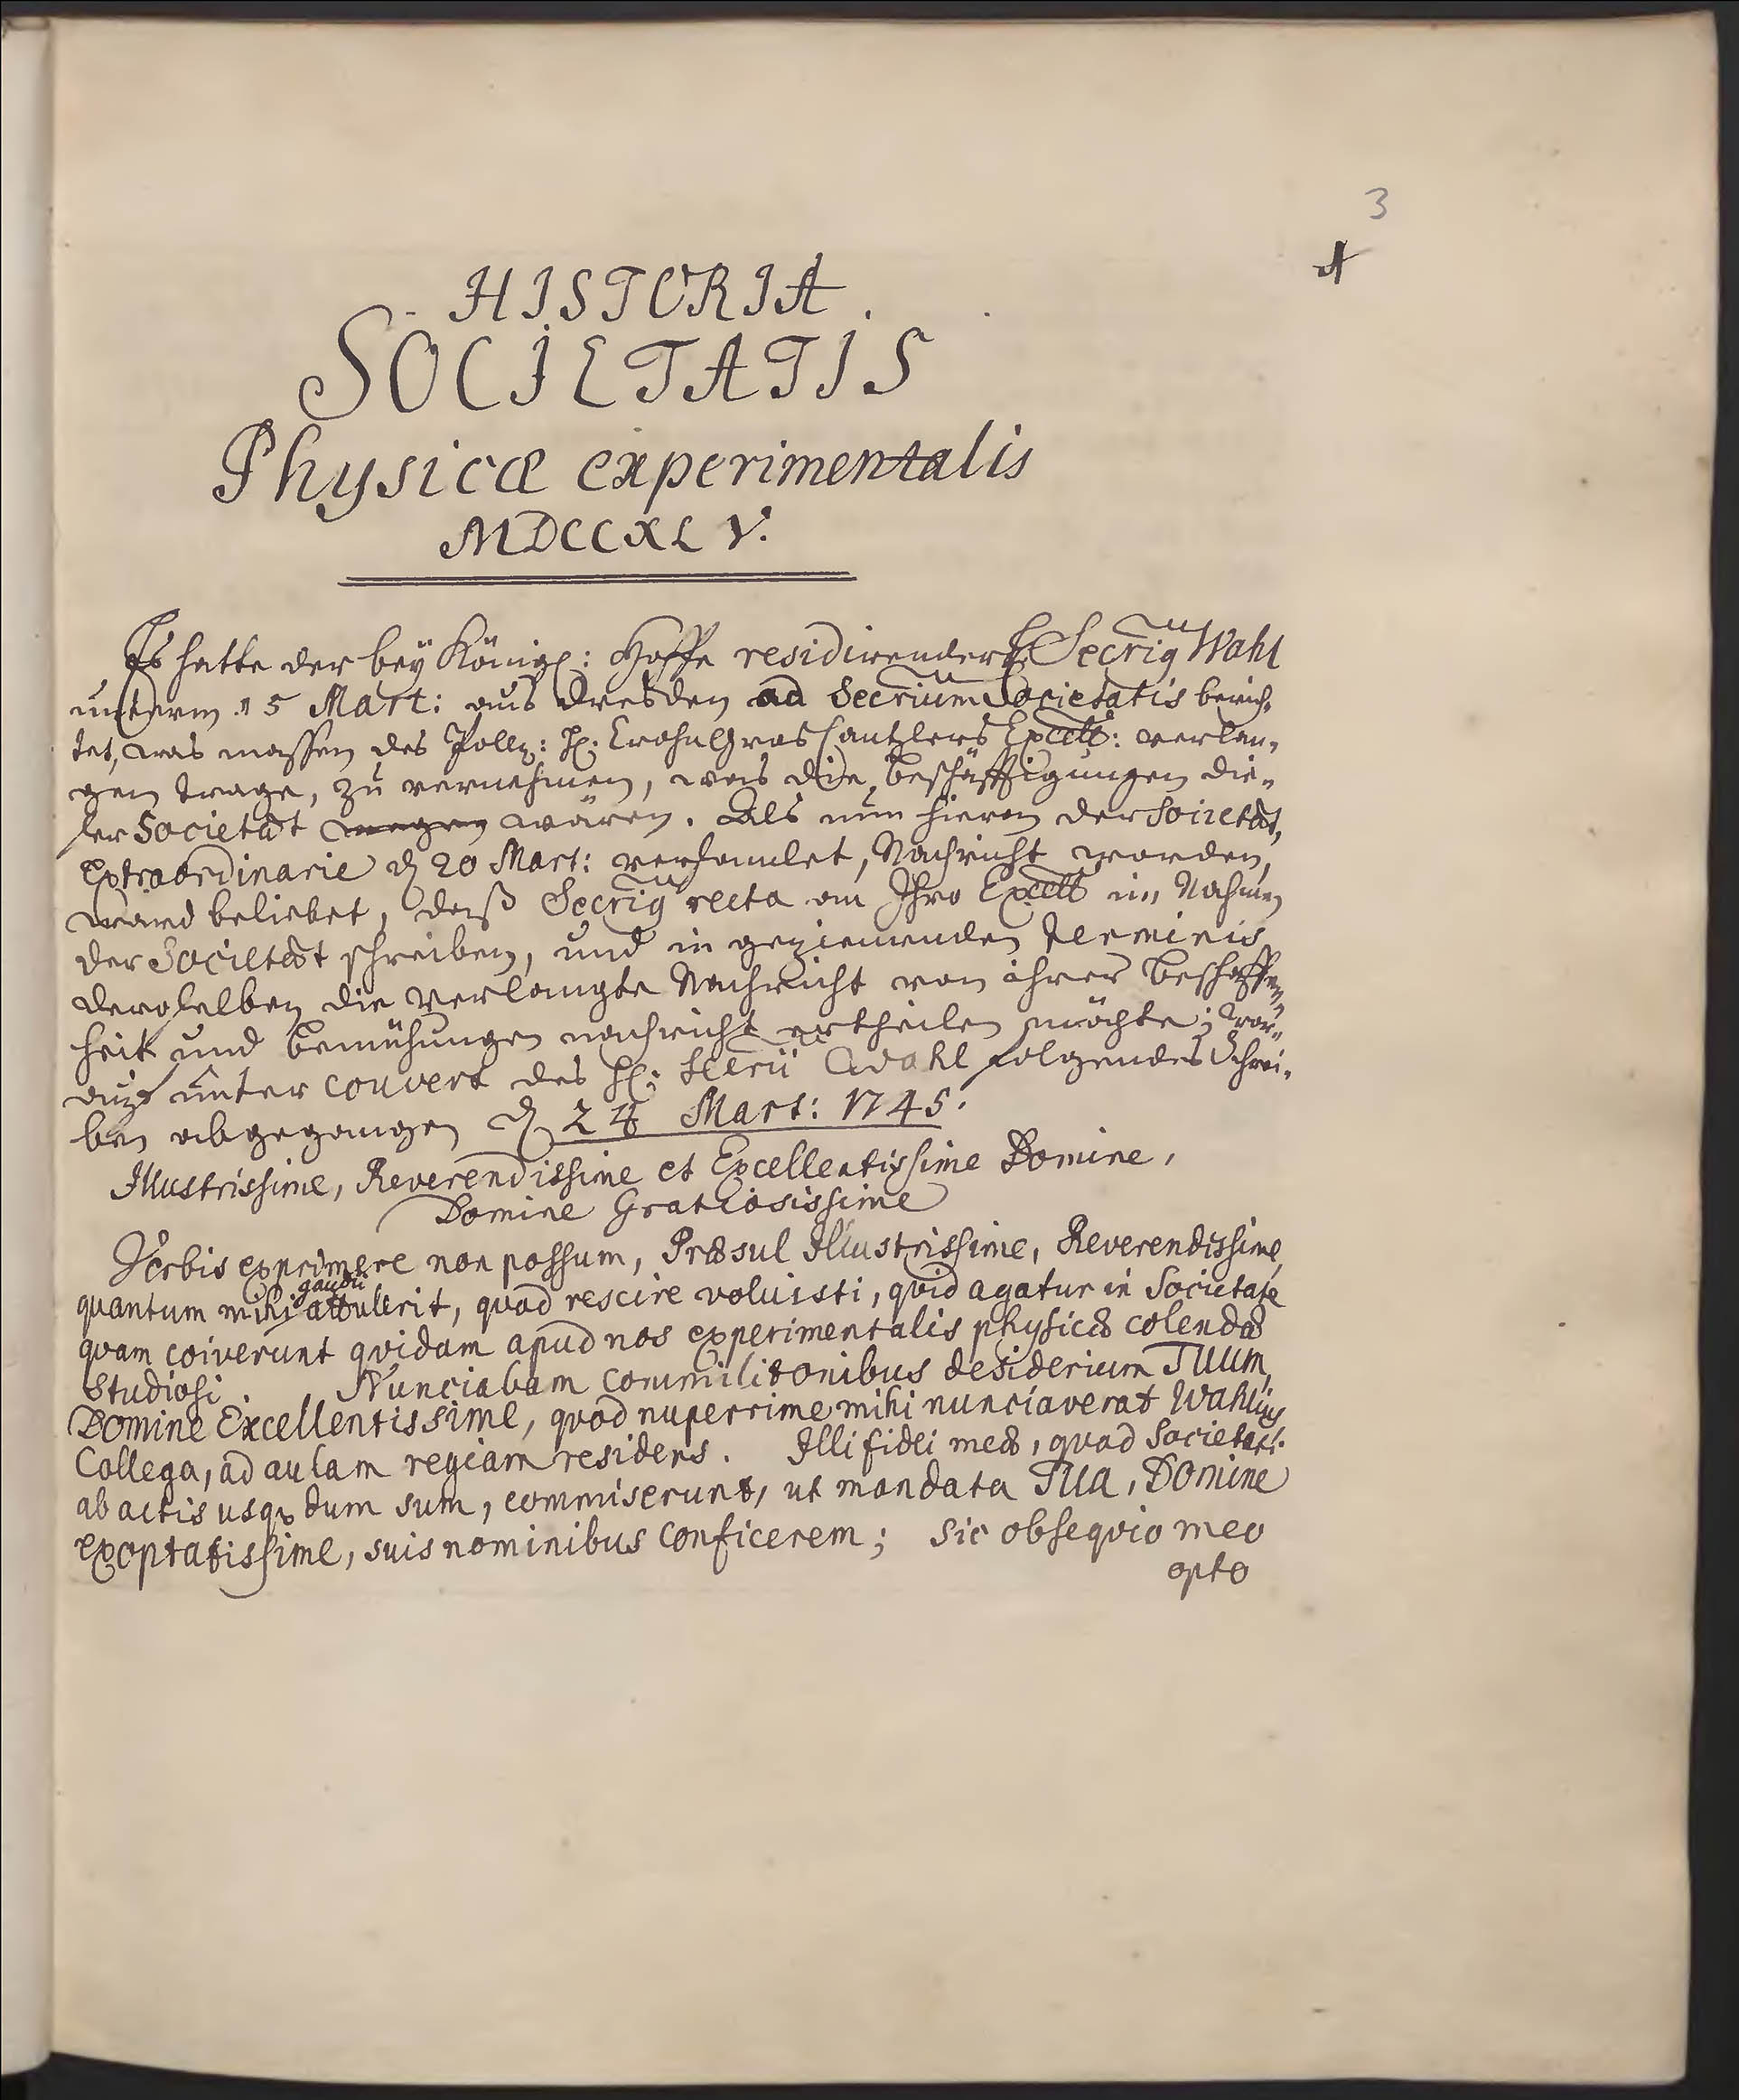 3
A
HISTORIA
SOCIETATIS
Physicæ experimentalis
MDCCXLV.
Es hatte der bey Königl: Hoffe residirender H. Secrig Wahl
unterm 15 Mart: aus Dresden ad Secrium Societatis berich-
tet, was massen des Polln: H. Crohn Gros Cantzlers Excell: verlan-
gen trage, zu vernehmen, was die Beschäfftigungen die-
ser Societät wegen wären. Als nun hievon der Societät,
Extraordinarie d. 20 Mart: versamlet, Nachricht worden,
ward beliebet, daß Secrig recta an Ihro Excell im Nahmen
der Societæt schreiben, und in geziemenden terminis
deroselben die verlangte Nachricht von ihrer Beschaffen-
heit und Bemühungen nachricht ertheilen möchte; Wor-
auf unter couvert des H: Secrii Wahl folgendes Schrei-
ben abgegangen d. 24 Mart: 1745.
Illustrissime, Reverendissime et Excellentissime Domine,
Domine Gratiosissime
Verbis exprimere non possum, Præsul Illustrissime, Reverendissime,
quantum mihi gaudii attulerit, quod rescire voluisti, quid agatur in Societate
quam coiverunt quidam apud nos experimentalis physicæ colendæ
studiosi. Nunciabam commilitonibus desiderium Tuum,
Domine Excellentissime, quod nuperrime mihi nunciaverat Wahlius
Collega, ad aulam regiam residens. Illi fidei meæ, quod Societati
ab actis usq dum sum, commiserunt, ut mandata Tua, Domine
exoptatissime, suis nominibus conficerem; sic obsequio meo
opto